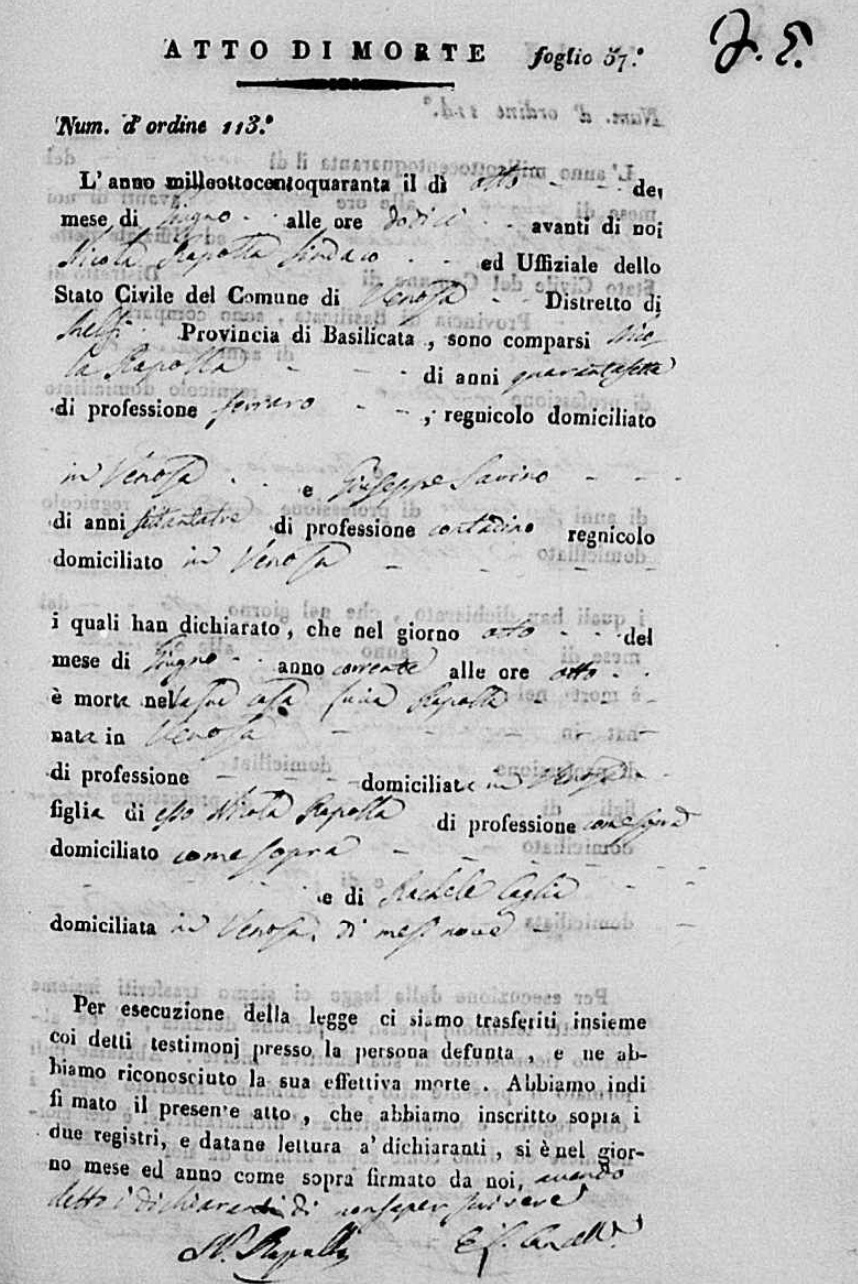 ATTO DI MORTE foglio 57.°
Num. d'ordine 113.°
L'anno milleottocentoquaranta il dì otto - - de
mese di Giugno - - alle ore dodici - - avanti di noi
Nicola Rapolla Sindaco - - ed Uffiziale dello
Stato Civile del Comune di Venosa - - Distretto di
Melfi - Provincia di Basilicata, sono comparsi Nico-
la Rapolla - - - di anni quarantasette
di professione ferraro - - , regnicolo domiciliato
in Venosa - - e Giuseppe Savino - - -
di anni settantatre di professione contadino regnicolo
domiciliato in Venosa - - - -
i quali han dichiarato, che nel giorno otto - - del
mese di Giugno - - anno corrente alle ore otto - -
è morta nella sua casa Rapolla - - -
nata in Venosa - - - - -
di professione - - - - domiciliata in Venosa -
figlia di esso Nicola Rapolla di professione come sopra
domiciliato come sopra - - - - -
- - - e di Rachele - -
domiciliata in Venosa, di mesi nove - - -
Per esecuzione della legge ci siamo trasferiti insieme
coi detti testimonj presso la persona defunta, e ne ab-
biamo riconosciuto la sua effettiva morte. Abbiamo indi
fi mato il presente atto, che abbiamo inscritto sopra i
due registri, e datane lettura a' dichiaranti, si è nel gior-
no mese ed anno come sopra firmato da noi, avendo
detto i dichiaranti di non saper scrivere
N. Rapolla